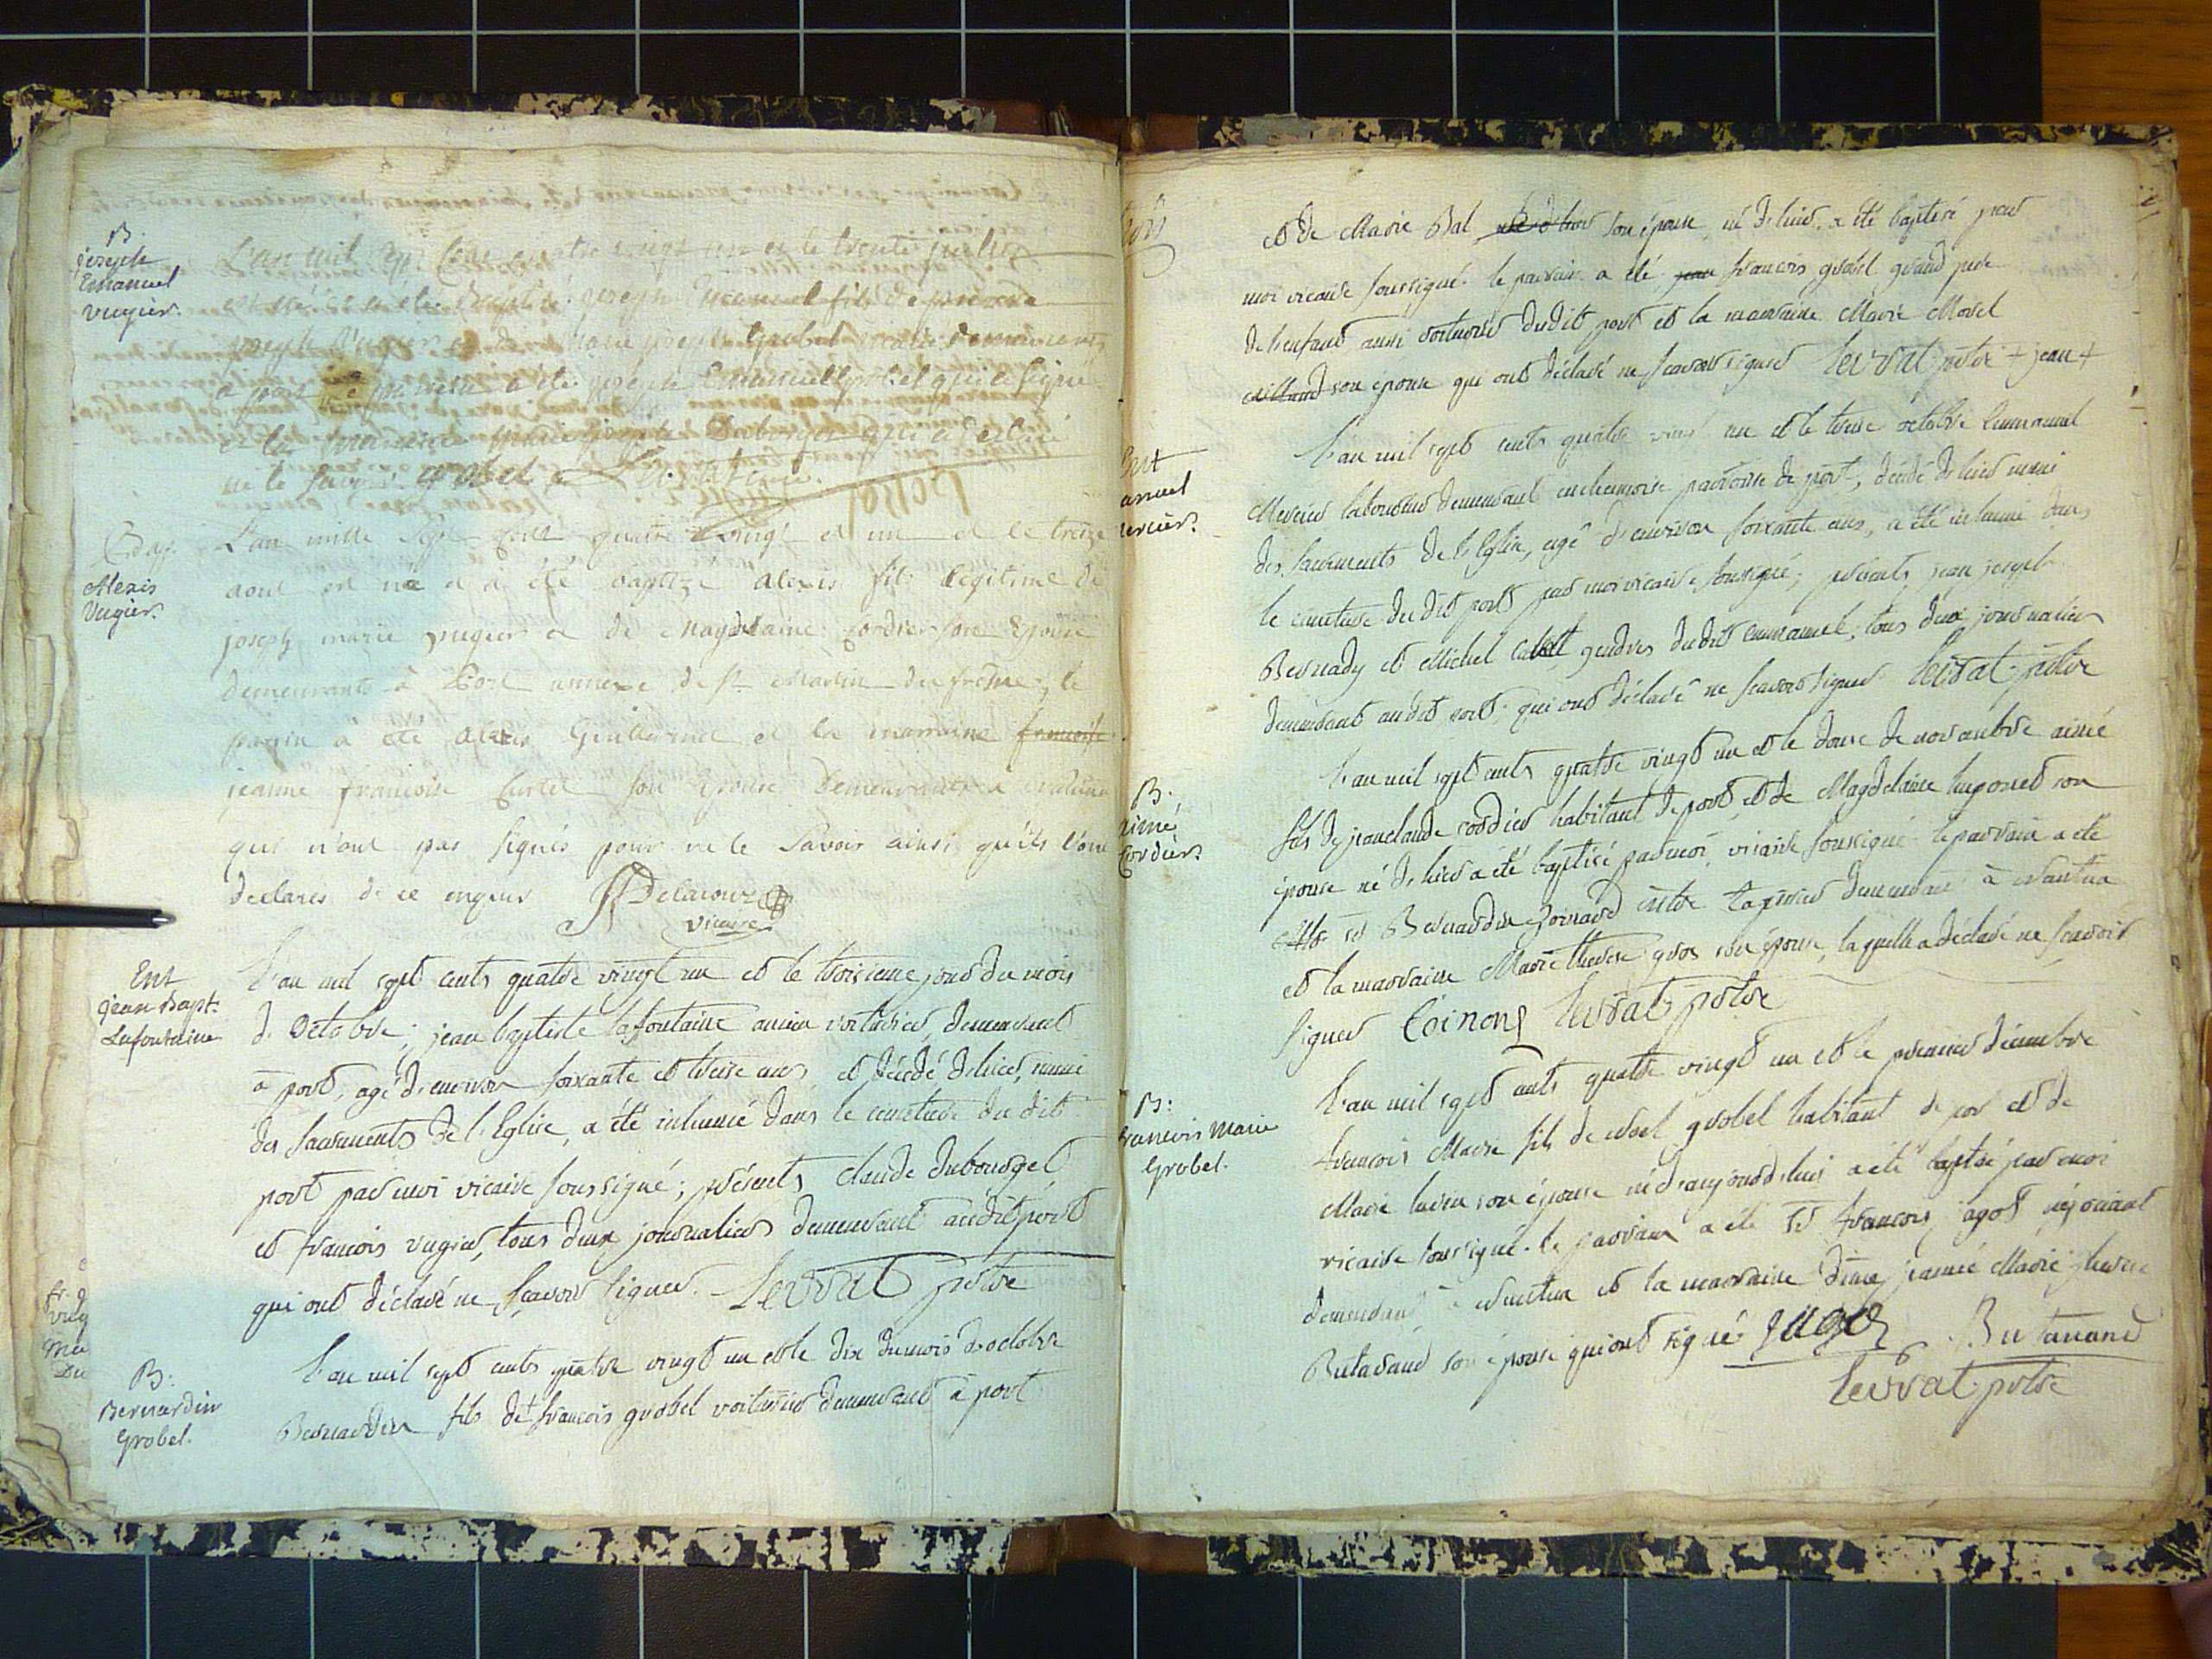 B.
joseph
Emanuel
vugier.
L'an mil sept cent quatre vingt un et le trente juillet
est né et a été baptisé joseph Emanuel fils de
joseph Vugier et de marie josephe Grobel mariés demeurants
a port le parrain a été joseph Emanuel qui a signé
et la marraine marie josephe Dubourget qui a déclaré
ne le savoir. grobel
Bap.
Alexis
Vugier.
L'an mille Sept Cent quatre vingt et un et le treize
aout est né et a été baptizé alexis fils legitime de
joseph marie vugier et de magdelaine Cordier son Epouse
demeurants à Port annexe de St Martin du frêne, le
parrin a été alexis Guillermet et la marraine francoise
jeanne francoise Curtet son Epouse Demeurants a
qui n'ont pas signés pour ne le Savoir ainsi qu'ils l'ont
declarés de ce enquis Delacour
vicaire
Ent
jean Bapt.
Lafontaine
L'an mil sept cents quatre vingt un et le troisieme jour du mois
d'octobre; jean baptiste lafontaine ancien voiturier, demeurant
à port, agé d'environ soixante et treize ans, et décédé d'hier, muni
des sacrements de l'Eglise, a été inhumé dans le cimetiere dudit
port par moi vicaire soussigné; présents claude dubourget,
et francois vugier, tous deux journaliers demeurant audit port
qui ont déclaré ne sçavoir signer. Levrat prêtre
B:
Bernardin
Grobel.
L'an mil sept cents quatre vingt un et le dix du mois d'octobre
Bernardin fils de + francois grobel voiturier demeurant à port
et de Marie Bal son épouse, né d'hier, a été baptisé par
moi vicaire soussigné. le parrain a été jean francois grobel grand pere
de l'enfant aussi voiturier dudit port et la marraine Marie Morel
son épouse qui ont déclaré ne scavoir signer Levrat prêtre + jean +
Ent
anuel
ercier.
L'an mil sept cents quatre vingt un et le treize octobre Emmanuel
Mercier laboureur demeurant en chamoise parroisse de port, décédé d'hier muni
des sacrements de l'Eglise, agé d'environ soixante ans, a été inhumé dans
le cimetiere du dit port par moi vicaire soussigné; présents jean joseph
Bernady et Michel gendres dudit emmanuel, tous deux journaliers
demeurant audit port, qui ont déclaré ne scavoir signer Levrat prêtre
B.
aimé
Cordier.
L'an mil sept cents quatre vingt un et le douze de novembre aimé
fils de jean claude cordier habitant de port, et de Magdelaine son
épouse né d'hier a été baptisé par moi vicaire soussigné le parrain a été
sr Bernardin Goinard demeurant à nantua
et la marraine Marie therese gros son épouse, laquelle a déclaré ne scavoir
signer Levrat prêtre
B:
francois Marie
Grobel.
L'an mil sept cents quatre vingt un et le premier décembre
francois Marie fils de noel grobel habitant de port et de
Marie son épouse né d'aujourd'hui a été baptisé par moi
vicaire soussigné. le parrain a été sr francois jagot négociant
demeurant à nantua et la marraine dme jeanne Marie therese
Butavand son épouse qui ont signé jagot Butavand
Levrat prêtre